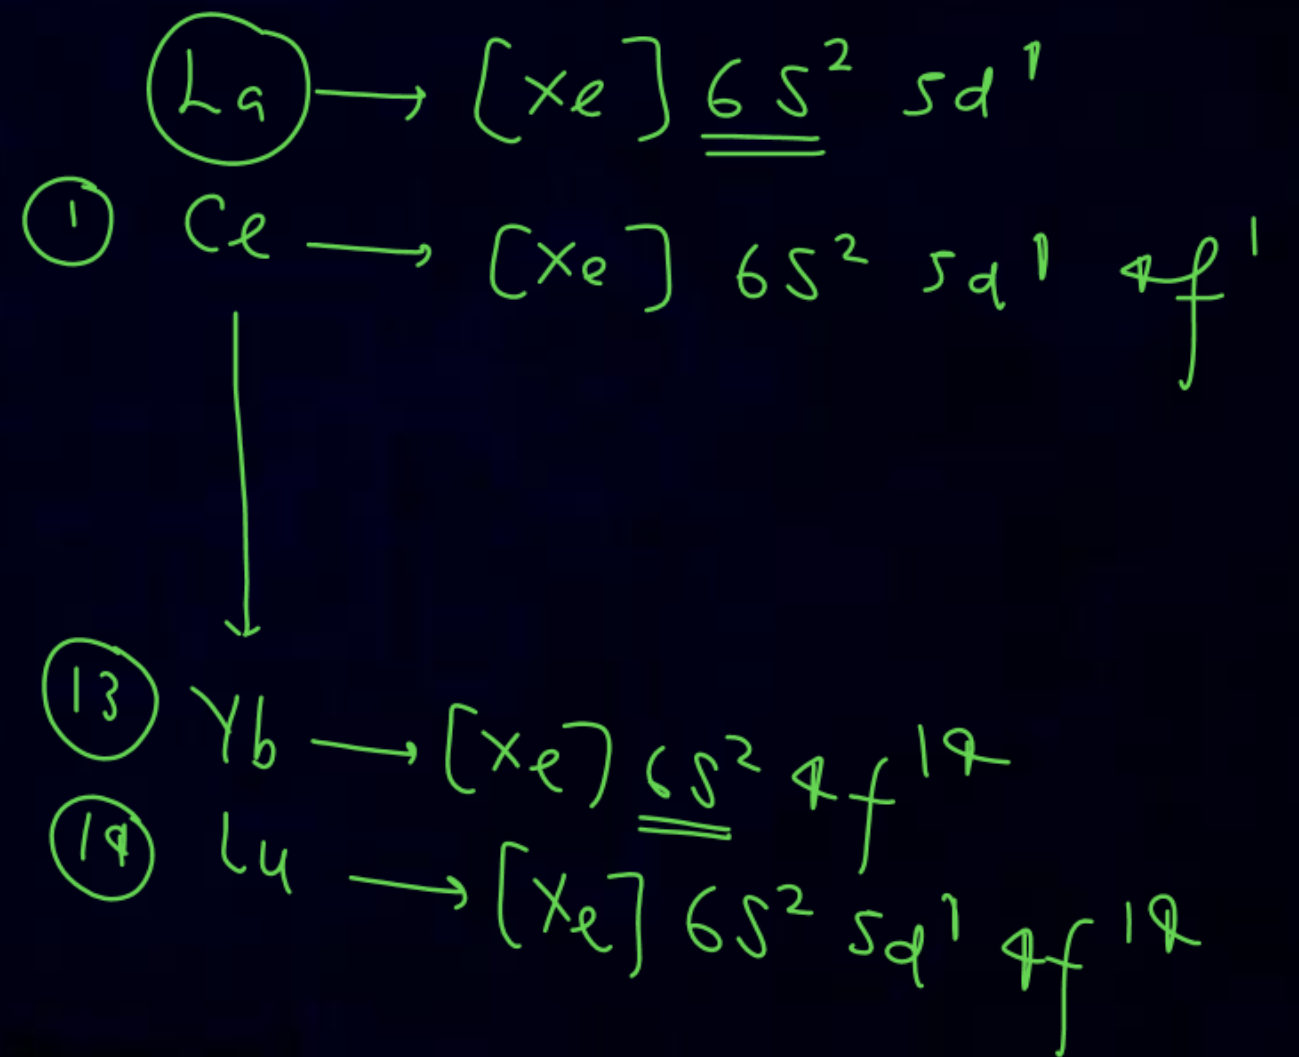 La → [Xe] 6s² 5d¹
① Ce → [Xe] 6s² 5d¹ 4f¹
⑬ Yb → [Xe] 6s² 4f¹⁴
⑭ Lu → [Xe] 6s² 5d¹ 4f¹⁴